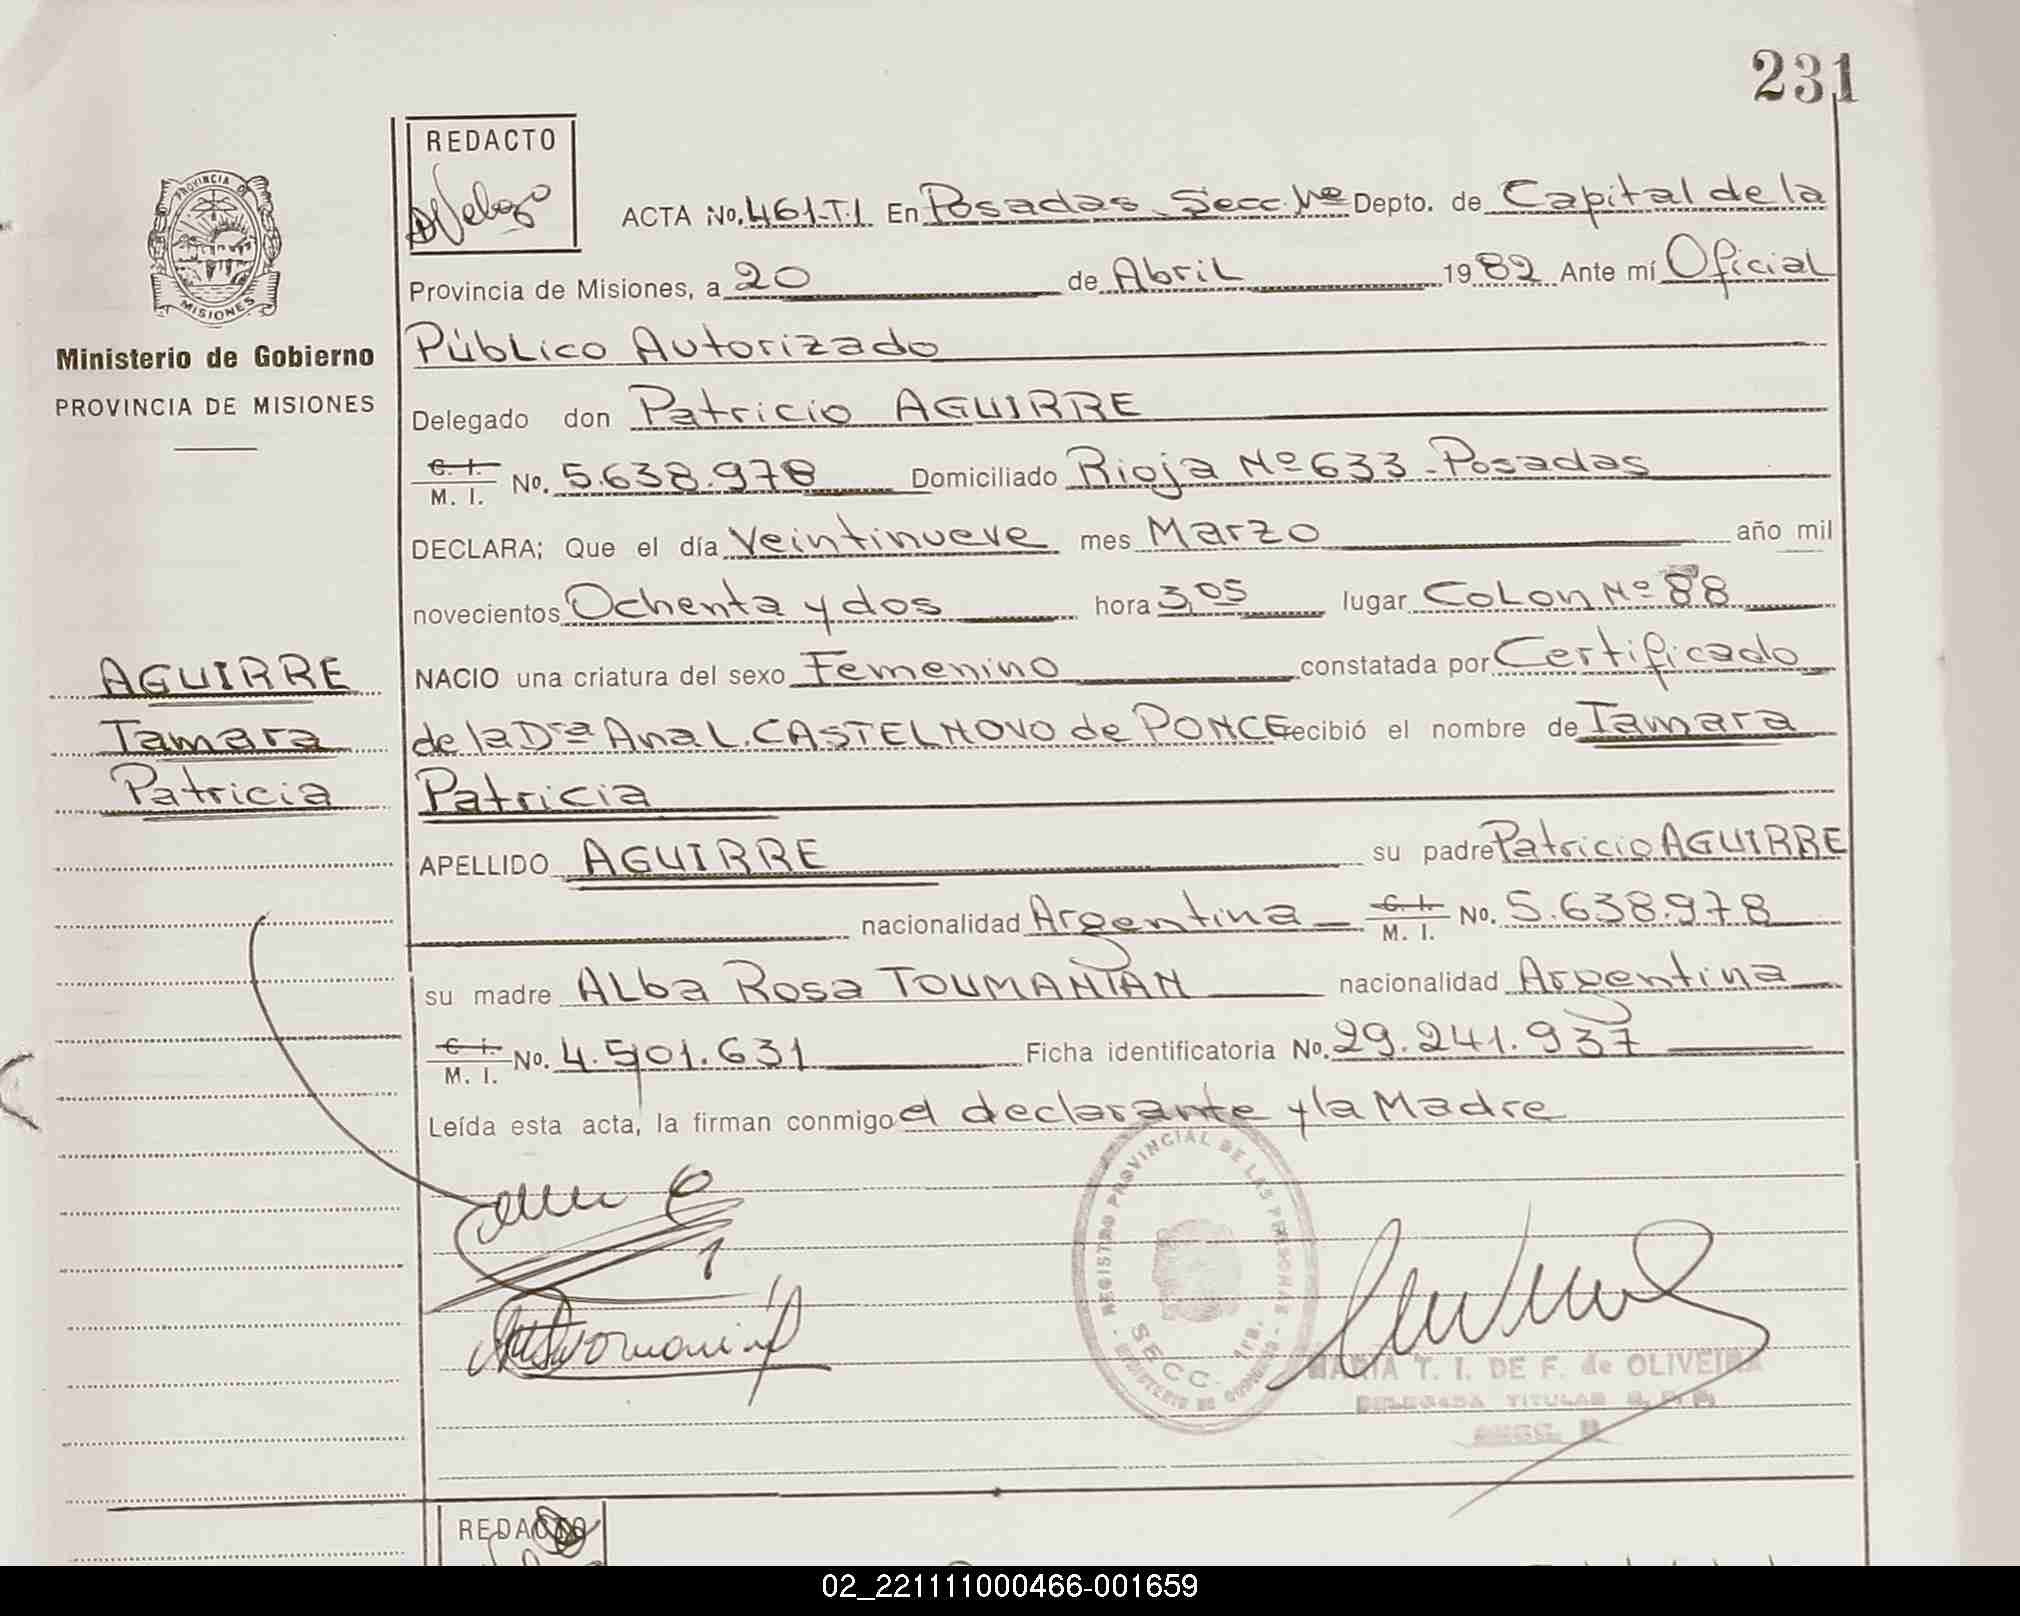 231
REDACTO
PROVINCIA DE
MISIONES
ACTA No. 461-T.I En Posadas, Secc. 1ra Depto. de Capital de la
Provincia de Misiones, a 20 de Abril 1982 Ante mí Oficial
Ministerio de Gobierno
PROVINCIA DE MISIONES
Público Autorizado
Delegado don Patricio AGUIRRE
C. I. M. I. No. 5.638.978 Domiciliado Rioja Nº 633 - Posadas
DECLARA; Que el día Veintinueve mes Marzo año mil
novecientos Ochenta y dos hora 3,05 lugar COLON Nº 88
AGUIRRE
Tamara
Patricia
NACIO una criatura del sexo Femenino constatada por Certificado
de la Dra Ana L. CASTELNOVO de PONCE recibió el nombre de Tamara
Patricia
APELLIDO AGUIRRE su padre Patricio AGUIRRE
nacionalidad Argentina - C. I. M. I. No. 5.638.978
su madre ALba Rosa TOUMANIAN nacionalidad Argentina
C. I. M. I. No. 4.501.631 Ficha identificatoria No. 29.241.937
Leída esta acta, la firman conmigo el declarante y la Madre
REGISTRO PROVINCIAL DE LAS PERSONAS
SECC. 1ra.
MINISTERIO DE GOBIERNO
MARIA T. I. DE F. de OLIVEIRA
DELEGADA TITULAR
REDACTO
02_221111000466-001659